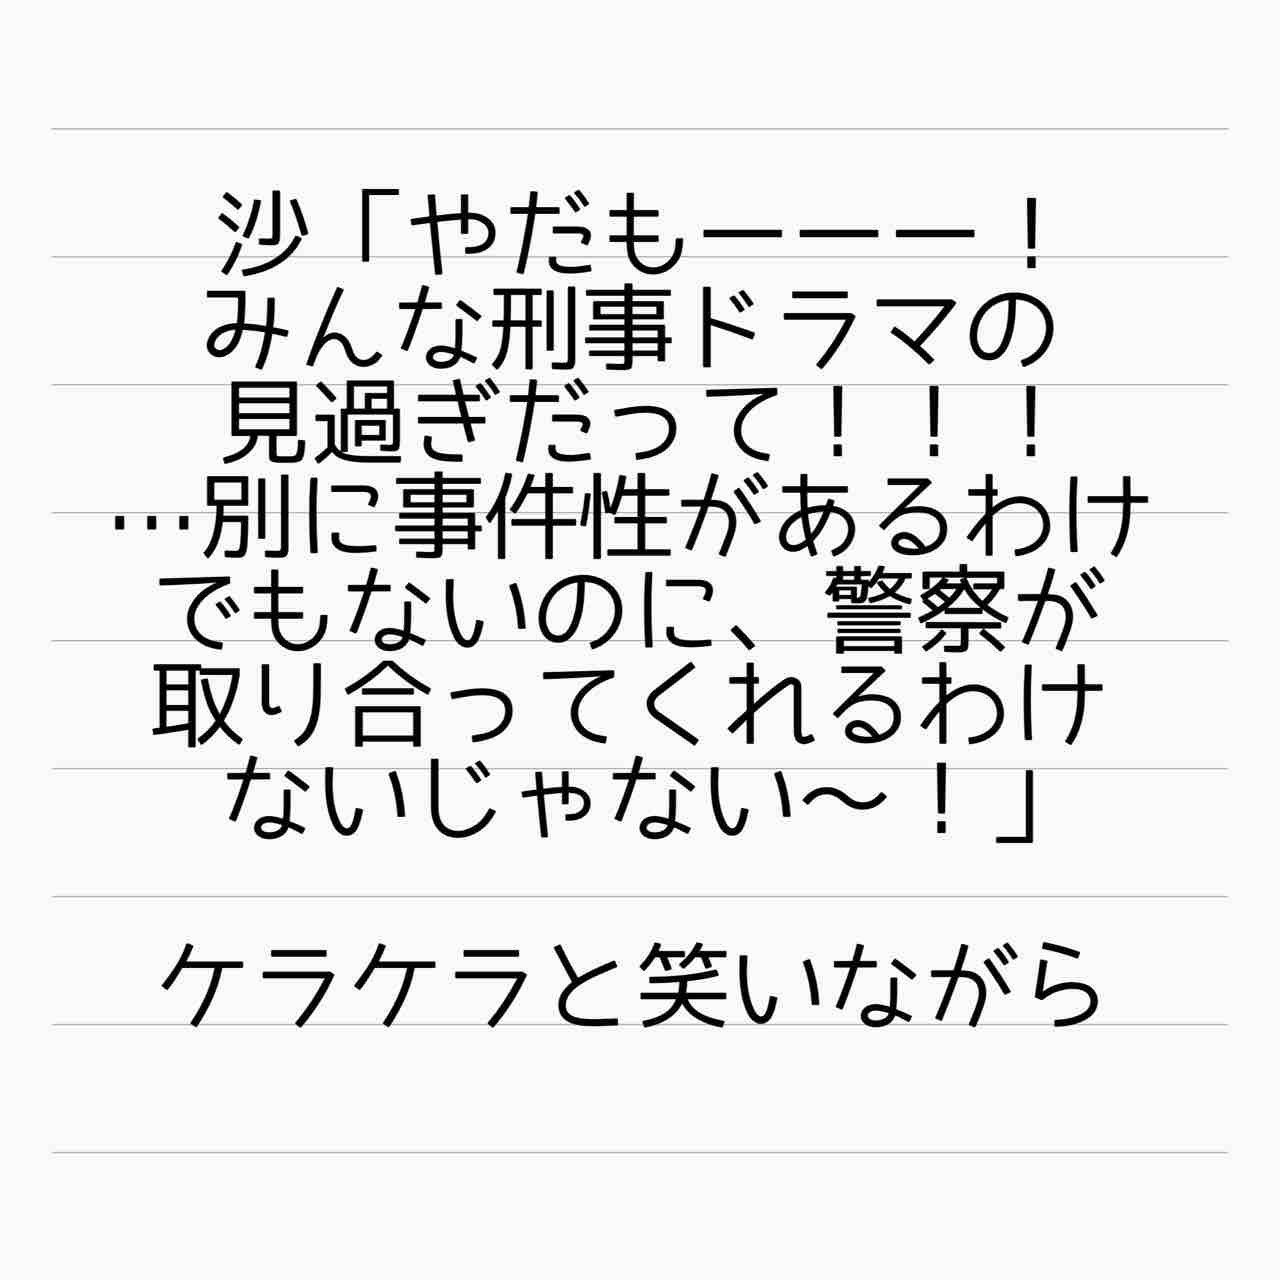 沙「やだもーーー！
みんな刑事ドラマの
見過ぎだって！！！
…別に事件性があるわけ
でもないのに、警察が
取り合ってくれるわけ
ないじゃない〜！」
ケラケラと笑いながら